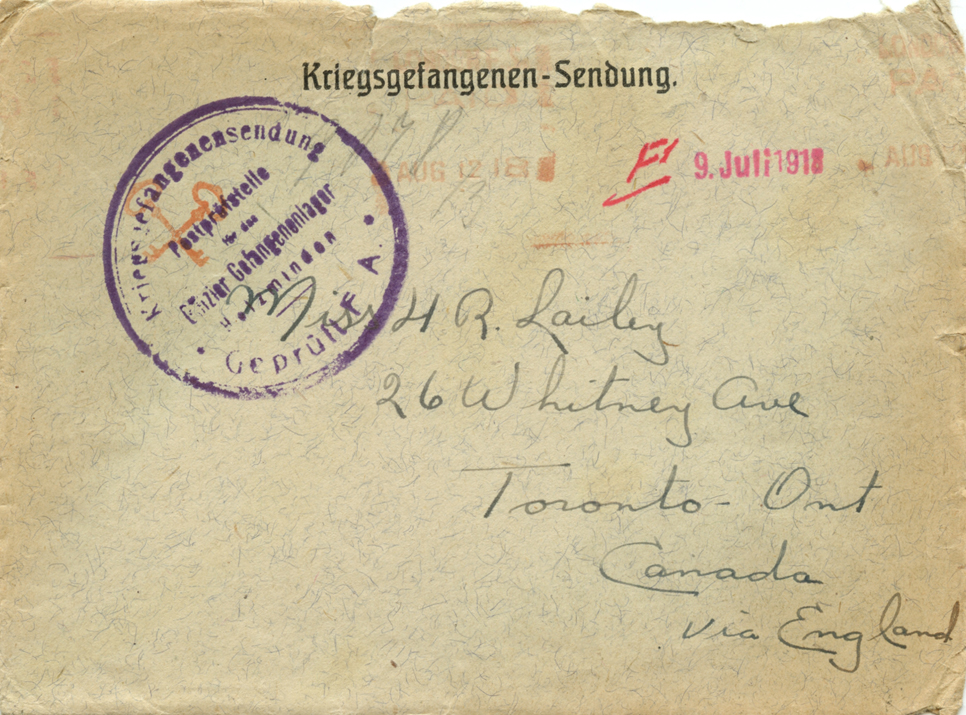 Kriegsgefangenen-Sendung.
Kriegsgefangenensendung
Postprüfstelle
für das
Offizier Gefangenenlager
Holzminden
Geprüft F. A.
F1
9. Juli 1918
AUG 12 1918
Miss H R. Lailey
26 Whitney Ave
Toronto - Ont
Canada
via England